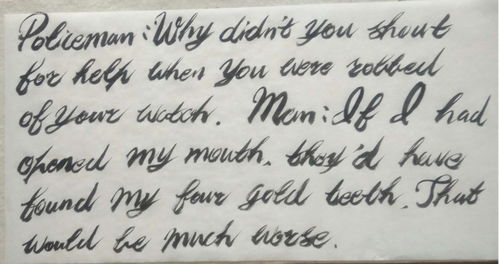 Policeman: Why didn't you shout
for help when you were robbed
of your watch. Man: If I had
opened my mouth, they'd have
found my four gold teeth. That
would be much worse.